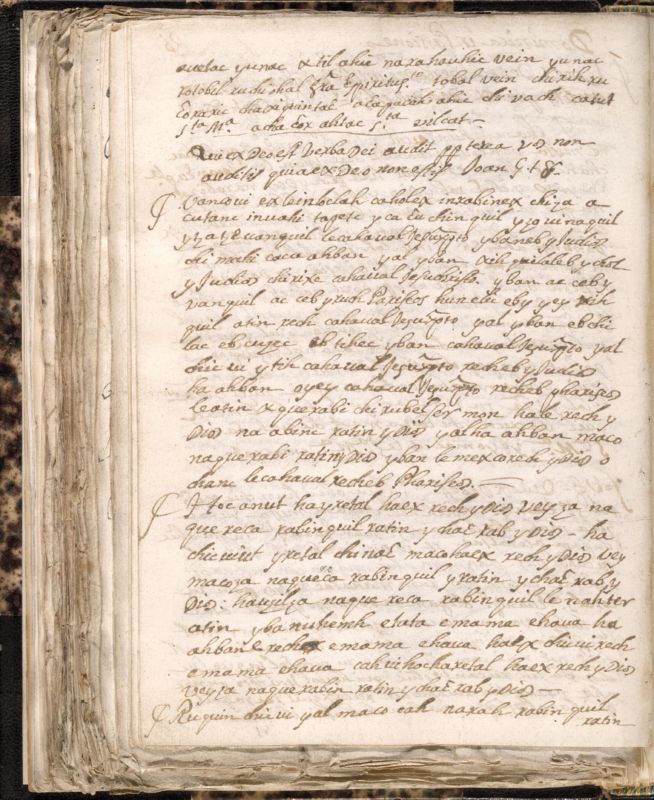 auctac yunac xtil ahic naxahauhic vein yunac
rotobil ruchohal gra Espiritu sto tobal vein chirih ru
Coraxic chaxiquintac alapacah ahic chi vach catut
Sta Ma acha Cox ahtac sta vilcat -
Qui ex Deo est Verba Dei audit ppterea vos non
auditis quia ex Deo non estis Joan
Vancoui exleinbelah caholex inrabinex chiza a
cutanc inuahi tagete yca cuchin quil yzouinaquil
lecahaual Jesuxpto ybaneb yJudios
chi mochi caca ahban yal yban xih
yJudios chirixc cahaual Jesuchristo. yban ac ceb y
vanquil ac ceb yruch Pariseos hunelic eb y yey xih
quil atin rech cahaual Jesuxpto yal yban ebchi
lac eb cuyec eb tihec yban cahaual Jesuxpto, yal
chic vi ytih cahaual Jesuxpto recheb yJudios
ha ahban oyey cahaual Jesuxpto recheb phariseos
leatin xquerabi chirubel ser mon hale rech y
Dios na abinc ratin yDios yalha ahban maco
naquerabi ratin yDios yban lemexcorech yDios o
chanc lecahaual recheb Phariseos. -
Hocanut hayretal haex rech yDios veyza na
que reca rabinquil ratin ychac rab yDios - ha
chicuiut yretal chinac macohaex rech yDios vey
macoza naqueca rabinquil yratin ychac rab y
Dios: hauyilza naque reca rabinquil lenahter
atin ybanuhemh etata emama ehaua ha
ahban rechex emama ehaua haex chicui rech
emama ehaua cahuihochaxetal haex rech yDios
veyza naquerabin ratin ychac rab yDios -
Ruquin chicvi yal maco cah naxah rabin quil
ratin